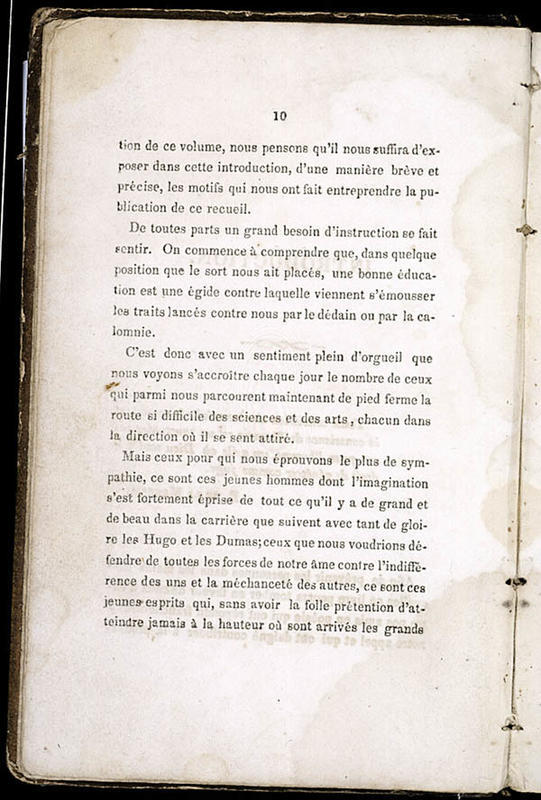 10
tion de ce volume, nous pensons qu'il nous suffira d'ex-
poser dans cette introduction, d'une manière brève et
précise, les motifs qui nous ont fait entreprendre la pu-
blication de ce recueil.
De toutes parts un grand besoin d'instruction se fait
sentir. On commence à comprendre que, dans quelque
position que le sort nous ait placés, une bonne éduca-
tion est une égide contre laquelle viennent s'émousser
les traits lancés contre nous par le dédain ou par la ca-
lomnie.
C'est donc avec un sentiment plein d'orgueil que
nous voyons s'accroître chaque jour le nombre de ceux
qui parmi nous parcourent maintenant de pied ferme la
route si difficile des sciences et des arts, chacun dans
la direction où il se sent attiré.
Mais ceux pour qui nous éprouvons le plus de sym-
pathie, ce sont ces jeunes hommes dont l'imagination
s'est fortement éprise de tout ce qu'il y a de grand et
de beau dans la carrière que suivent avec tant de gloi-
re les Hugo et les Dumas; ceux que nous voudrions dé-
fendre de toutes les forces de notre âme contre l'indiffé-
rence des uns et la méchanceté des autres, ce sont ces
jeunes esprits qui, sans avoir la folle prétention d'at-
teindre jamais à la hauteur où sont arrivés les grands